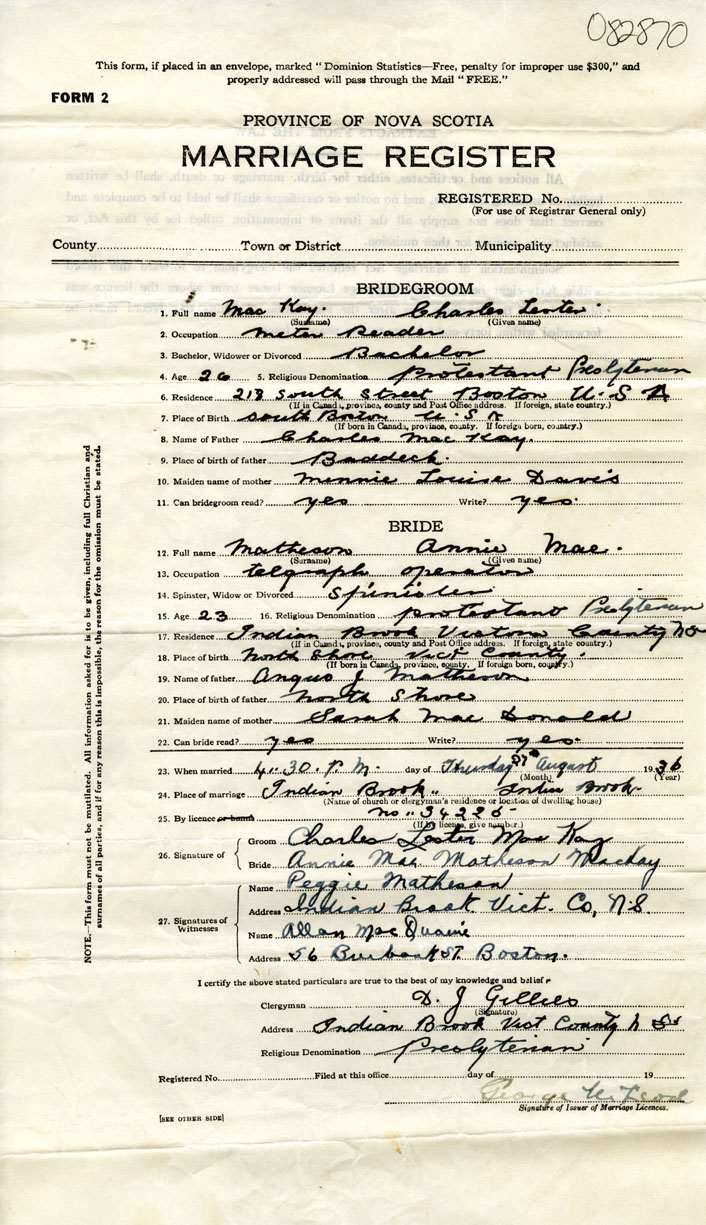 082870
This form, if placed in an envelope, marked "Dominion Statistics—Free, penalty for improper use $300," and
properly addressed will pass through the Mail "FREE."
FORM 2
PROVINCE OF NOVA SCOTIA
MARRIAGE REGISTER
REGISTERED No.
(For use of Registrar General only)
County Town or District Municipality
BRIDEGROOM
1. Full name Mac Kay. Charles Lester
(Surname) (Given name)
2. Occupation Meter Reader
3. Bachelor, Widower or Divorced Bachelor
4. Age 26 5. Religious Denomination protestant Presbyterian
6. Residence 218 South Street Boston U. S. A
(If in Canada, province, county and Post Office address. If foreign, state country.)
7. Place of Birth South Boston U. S. A
(If born in Canada, province, county. If foreign born, country.)
8. Name of Father Charles Mac Kay.
9. Place of birth of father Baddeck.
10. Maiden name of mother Minnie Louise Davis
11. Can bridegroom read? yes Write? yes.
BRIDE
12. Full name Matheson Annie Mae.
(Surname) (Given name)
13. Occupation telgraph operator
14. Spinster, Widow or Divorced Spinister
15. Age 23 16. Religious Denomination protestant Presbyterian
17. Residence Indian Brook Victoria County NS
(If in Canada, province, county and Post Office address. If foreign, state country.)
18. Place of birth North Shore Vict County.
(If born in Canada, province, county. If foreign born, country.)
19. Name of father Angus J Matheson
20. Place of birth of father North Shore
21. Maiden name of mother Sarah Mac Donald
22. Can bride read? yes Write? yes.
23. When married 4.30. P. M. day of Thursday 27th August 1936
(Month) (Year)
24. Place of marriage Indian Brook.. Indian Brook.
(Name of church or clergyman's residence or location of dwelling house)
25. By licence or banns no.. 34235
(If by license, give number.)
26. Signature of
Groom Charles Lester Mac Kay
Bride Annie Mae Matheson Mackay
27. Signatures of Witnesses
Name Peggie Matheson
Address Indian Brook Vict. Co, N.S.
Name Allan MacQuaine
Address 56 Burbank ST. Boston.
I certify the above stated particulars are true to the best of my knowledge and belief.
Clergyman D. J Gillies
(Signature)
Address Indian Brook Vict County N S
Religious Denomination Presbyterian
Registered No. Filed at this office day of 19
George McLeod
Signature of Issuer of Marriage Licences.
[SEE OTHER SIDE]
NOTE.—This form must not be mutilated. All information asked for is to be given, including full Christian and
surnames of all parties, and if for any reason this is impossible, the reason for the omission must be stated.